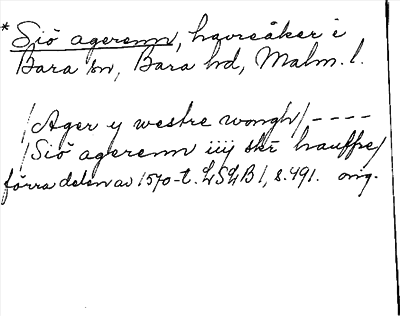 * Siö agerenn, havreåker i
Bara sn, Bara hd, Malm. l.
/Ager y westre wongh/ ----
/Siö agerenn iiij skr hauffre/
förra delen av 1570-t. LSLB 1, s. 491. orig.